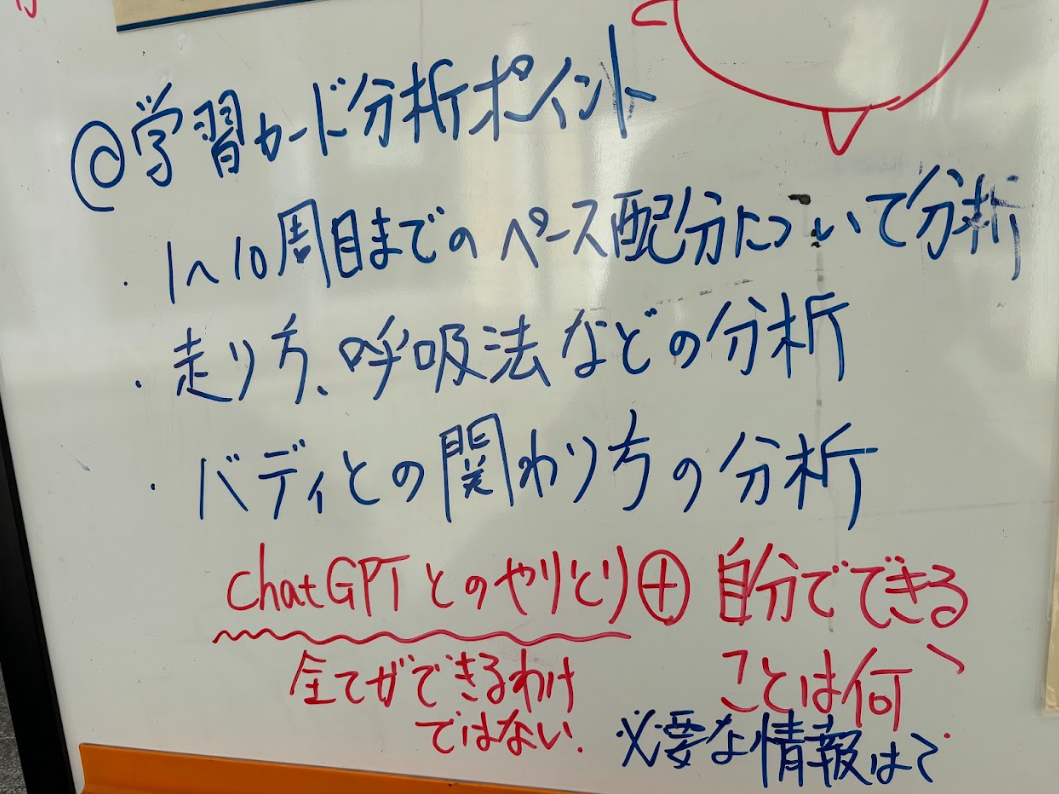 ◎学習カード分析ポイント
・1〜10周目までのペース配分について分析
・走り方、呼吸法などの分析
・バディとの関わり方の分析
chatGPTとのやりとり⊕自分でできる
全てができるわけ
ではない.
ことは何
必要な情報は?